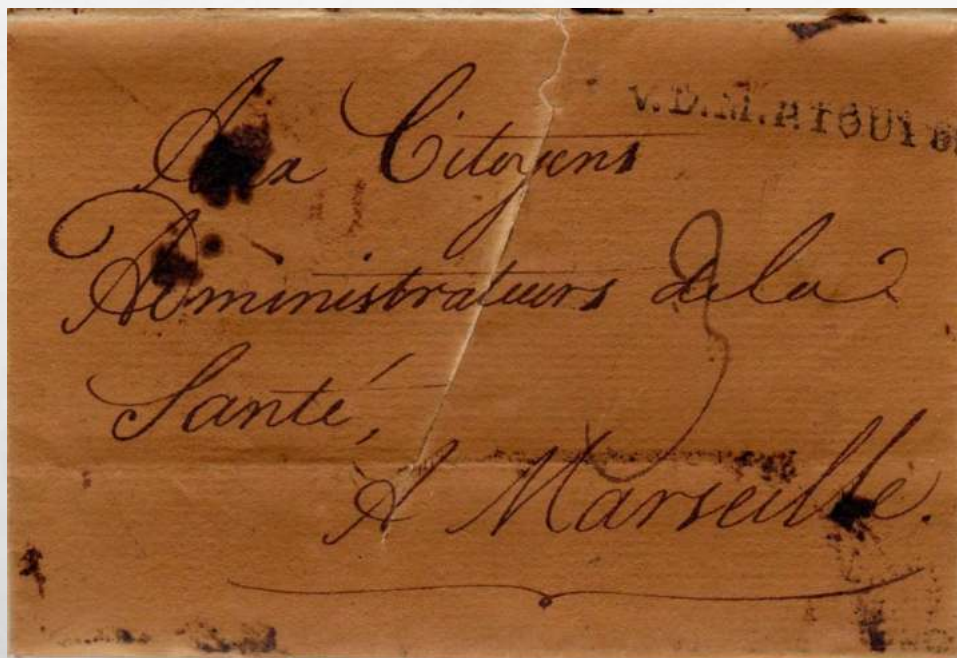 V.D.M.
Aux Citoyens
Administrateurs de la
Santé,
A Marseille.